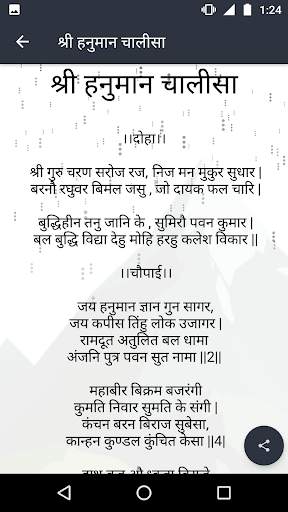 1:24
श्री हनुमान चालीसा
श्री हनुमान चालीसा
।।दोहा।।
श्री गुरु चरण सरोज रज, निज मन मुकुर सुधार |
बरनौ रघुवर बिमल जसु , जो दायक फल चारि |
बुद्धिहीन तनु जानि के , सुमिरौ पवन कुमार |
बल बुद्धि विद्या देहु मोहि हरहु कलेश विकार ||
।।चौपाई।।
जय हनुमान ज्ञान गुन सागर,
जय कपीस तिंहु लोक उजागर |
रामदूत अतुलित बल धामा
अंजनि पुत्र पवन सुत नामा ||2||
महाबीर बिक्रम बजरंगी
कुमति निवार सुमति के संगी |
कंचन बरन बिराज सुबेसा,
कान्हन कुण्डल कुंचित केसा ||4|